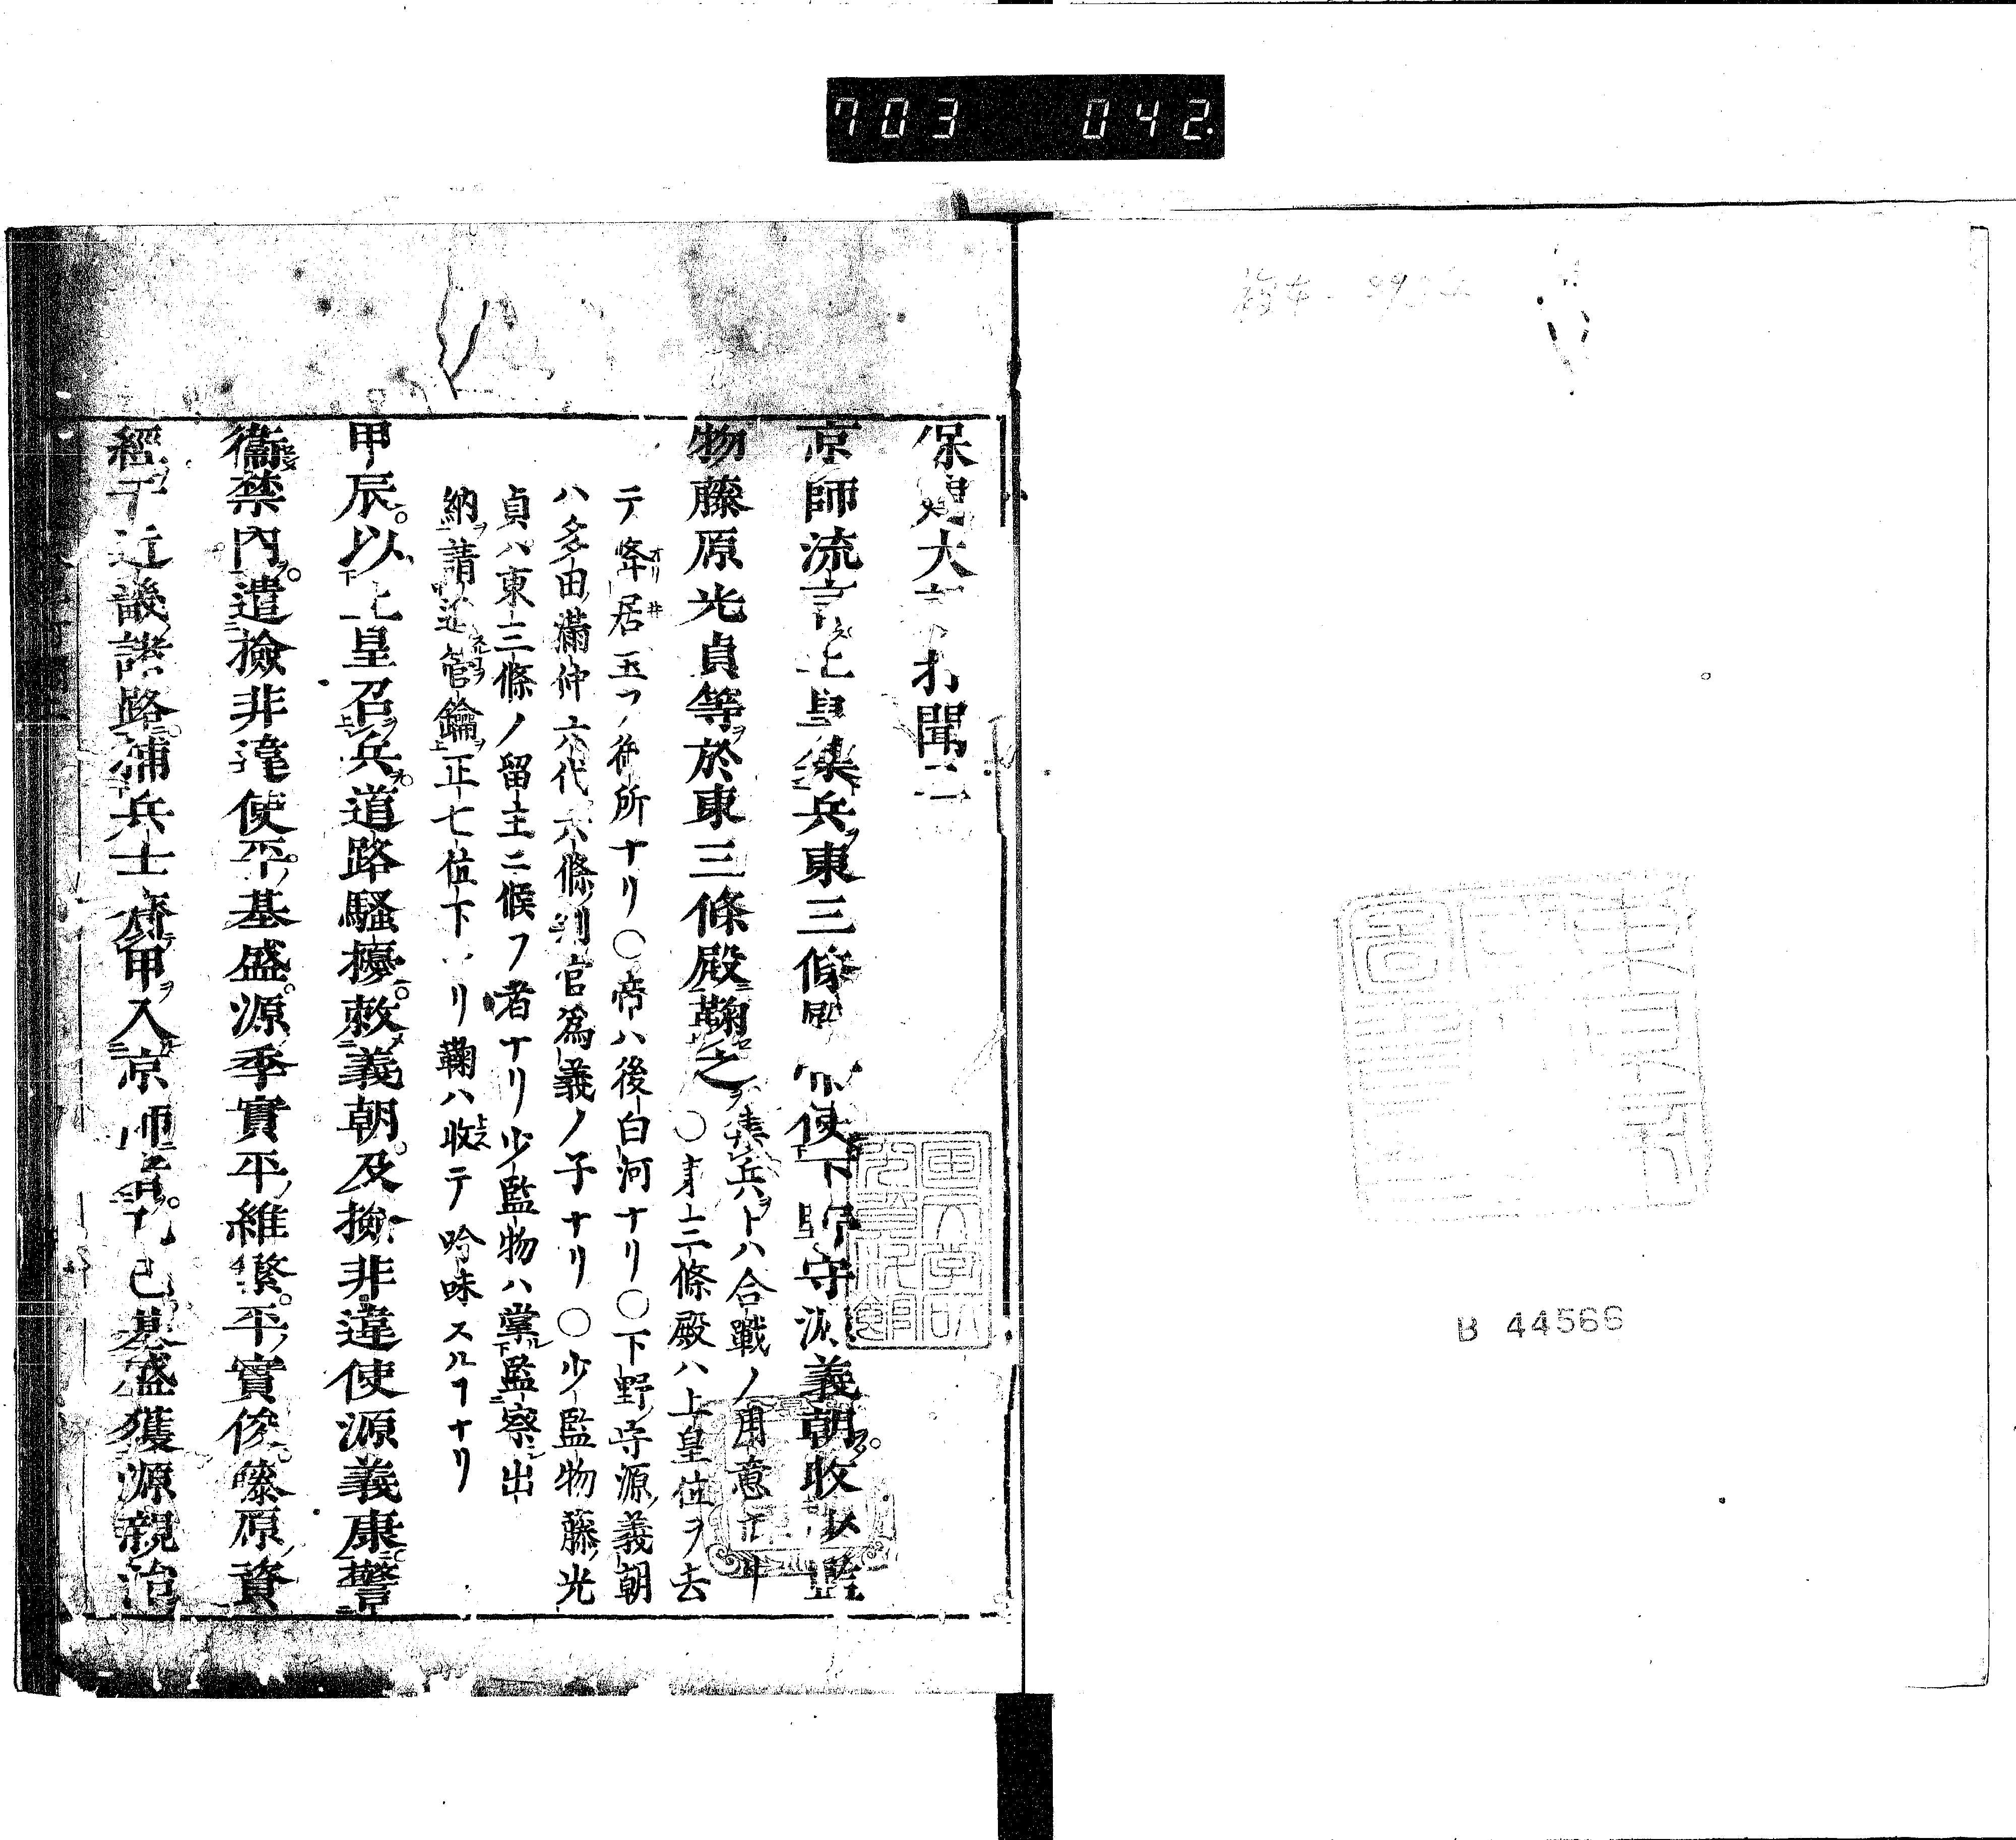 703 042
保建大打聞二
京師流言上皇集兵東三條殿帝使下野守源義朝收少監
物藤原光貞等於東三條殿鞠之
集兵ヲトハ合戰ノ用意
○東三條殿ハ上皇位ヲ去
テ降居玉フノ御所ナリ○帝ハ後白河ナリ○下野守源義朝
ハ多田滿仲六代六條判官爲義ノ子ナリ○少監物藤光
貞ハ東三條ノ留主ニ候フ者ナリ少監物ハ掌監察出
納請進管鑰正七位下ナリ鞠ハ收テ吟味スルヿナリ
甲辰以上皇召兵道路騷擾敕義朝及撿非違使源義康警
衞禁内遣撿非違使平基盛源季實平維繁平實俊藤原資
經于近畿諸路捕兵士齎甲入京師者既已基盛獲源親治
B 44566